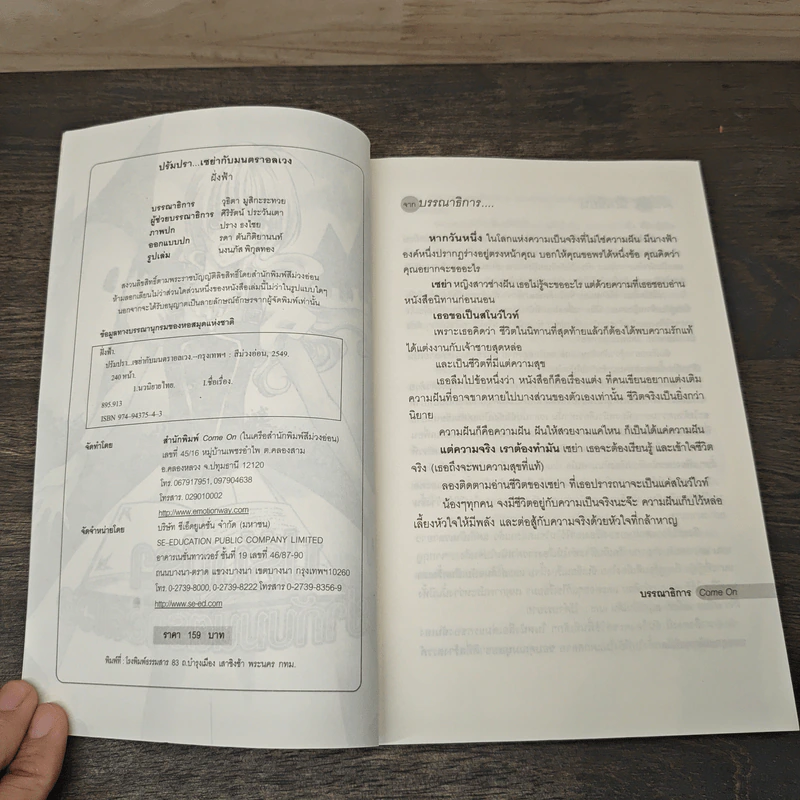 ปรัมปรา...เซย่ากับมนตราอลเวง
ฝั่งฟ้า
บรรณาธิการ วุธิตา มูสิกะระทวย
ผู้ช่วยบรรณาธิการ ศิริรัตน์ ประวันเตา
ภาพปก ปราง ธงไชย
ออกแบบปก รดา ตันกิติยานนท์
รูปเล่ม นงนภัส พิกุลทอง
สงวนลิขสิทธิ์ตามพระราชบัญญัติลิขสิทธิ์โดยสำนักพิมพ์สีม่วงอ่อน
ห้ามลอกเลียนไม่ว่าส่วนใดส่วนหนึ่งของหนังสือเล่มนี้ไม่ว่าในรูปแบบใดๆ
นอกจากจะได้รับอนุญาตเป็นลายลักษณ์อักษรจากผู้จัดพิมพ์เท่านั้น
ข้อมูลทางบรรณานุกรมของหอสมุดแห่งชาติ
ฝั่งฟ้า.
ปรัมปรา...เซย่ากับมนตราอลเวง.--กรุงเทพฯ : สีม่วงอ่อน, 2549.
240 หน้า.
1.นวนิยายไทย. I.ชื่อเรื่อง.
895.913
ISBN 974-94375-4-3
จัดทำโดย สำนักพิมพ์ Come On (ในเครือสำนักพิมพ์สีม่วงอ่อน)
เลขที่ 45/16 หมู่บ้านเพชรอำไพ ต.คลองสาม
อ.คลองหลวง จ.ปทุมธานี 12120
โทร. 067917951, 097904638
โทรสาร. 029010002
http://www.emotionway.com
จัดจำหน่ายโดย บริษัท ซีเอ็ดยูเคชั่น จำกัด (มหาชน)
SE-EDUCATION PUBLIC COMPANY LIMITED
อาคารเนชั่นทาวเวอร์ ชั้นที่ 19 เลขที่ 46/87-90
ถนนบางนา-ตราด แขวงบางนา เขตบางนา กรุงเทพฯ10260
โทร. 0-2739-8000, 0-2739-8222 โทรสาร 0-2739-8356-9
http://www.se-ed.com
ราคา 159 บาท
พิมพ์ที่ : โรงพิมพ์ธรรมสาร 83 ถ.บำรุงเมือง เสาชิงช้า พระนคร กทม.
จาก บรรณาธิการ....
หากวันหนึ่ง ในโลกแห่งความเป็นจริงที่ไม่ใช่ความฝัน มีนางฟ้า
องค์หนึ่งปรากฏร่างอยู่ตรงหน้าคุณ บอกให้คุณขอพรได้หนึ่งข้อ คุณคิดว่า
คุณอยากจะขออะไร
เซย่า หญิงสาวช่างฝัน เธอไม่รู้จะขออะไร แต่ด้วยความที่เธอชอบอ่าน
หนังสือนิทานก่อนนอน
เธอขอเป็นสโนว์ไวท์
เพราะเธอคิดว่า ชีวิตในนิทานที่สุดท้ายแล้วก็ต้องได้พบความรักแท้
ได้แต่งงานกับเจ้าชายสุดหล่อ
และเป็นชีวิตที่มีแต่ความสุข
เธอลืมไปข้อหนึ่งว่า หนังสือก็คือเรื่องแต่ง ที่คนเขียนอยากแต่งเติม
ความฝันที่อาจขาดหายไปบางส่วนของตัวเองเท่านั้น ชีวิตจริงเป็นยิ่งกว่า
นิยาย
ความฝันก็คือความฝัน ฝันให้สวยงามแค่ไหน ก็เป็นได้แค่ความฝัน
แต่ความจริง เราต้องทำมัน เซย่า เธอจะต้องเรียนรู้ และเข้าใจชีวิต
จริง (เธอถึงจะพบความสุขที่แท้)
ลองติดตามอ่านชีวิตของเซย่า ที่เธอปรารถนาจะเป็นแค่สโนว์ไวท์
น้องๆทุกคน จงมีชีวิตอยู่กับความเป็นจริงนะจ๊ะ ความฝันเก็บไว้หล่อ
เลี้ยงหัวใจให้มีพลัง และต่อสู้กับความจริงด้วยหัวใจที่กล้าหาญ
บรรณาธิการ Come On